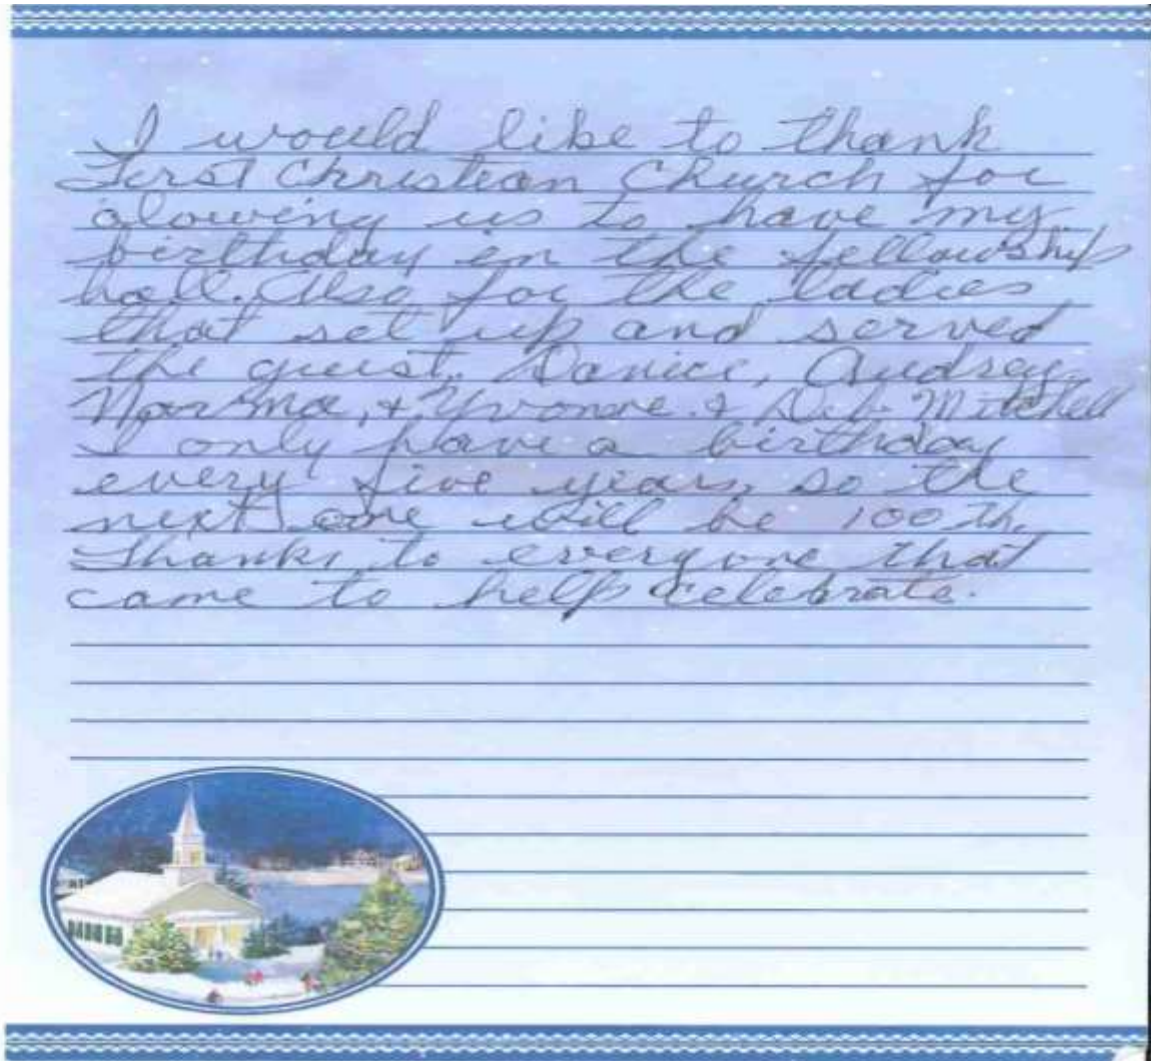 I would like to thank
First Christian Church for
alowing us to have my
birthday in the fellowship
hall. Also for the ladies
that set up and served
the guest. Danice, Audrey,
Norma, & Yvonne. & Deb Mitchell
I only have a birthday
every five years, so the
next one will be 100th.
Thanks to everyone that
came to help celebrate.